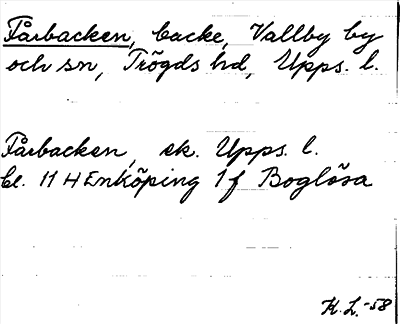 Fårbacken, backe, Vallby by
och sn, Trögds hd, Upps. l.
Fårbacken, ek. Upps. l.
bl. 11 H Enköping 1 f Boglösa
K. L. -58